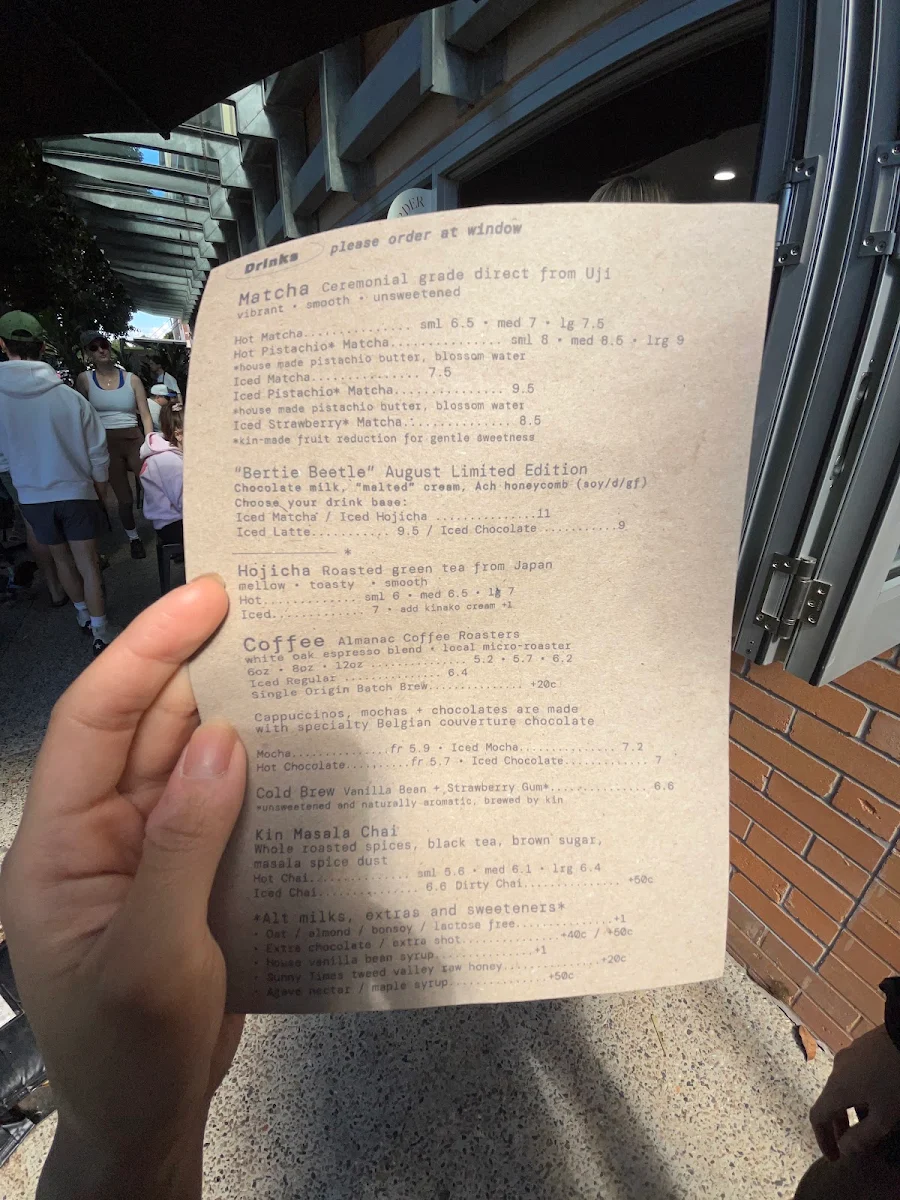 DER
Drinks please order at window
Matcha Ceremonial grade direct from Uji
vibrant • smooth • unsweetened
Hot Matcha............. sml 6.5 • med 7 • lg 7.5
Hot Pistachio* Matcha............... sml 8 • med 8.5 • lrg 9
*house made pistachio butter, blossom water
Iced Matcha............... 7.5
Iced Pistachio* Matcha............... 9.5
*house made pistachio butter, blossom water
Iced Strawberry* Matcha............... 8.5
*kin-made fruit reduction for gentle sweetness
"Bertie Beetle" August Limited Edition
Chocolate milk, "malted" cream, Ach honeycomb (soy/d/gf)
Choose your drink base:
Iced Matcha / Iced Hojicha ..............11
Iced Latte.......... 9.5 / Iced Chocolate ...........9
*
Hojicha Roasted green tea from Japan
mellow • toasty • smooth
Hot............. sml 6 • med 6.5 • lg 7
Iced............. 7 • add kinako cream +1
Coffee Almanac Coffee Roasters
white oak espresso blend • local micro-roaster
6oz • 8oz • 12oz .................. 5.2 • 5.7 • 6.2
Iced Regular .............. 6.4
Single Origin Batch Brew.............. +20c
Cappuccinos, mochas + chocolates are made
with specialty Belgian couverture chocolate
Mocha...............fr 5.9 • Iced Mocha............... 7.2
Hot Chocolate..........fr 5.7 • Iced Chocolate.............. 7
Cold Brew Vanilla Bean + Strawberry Gum*.................. 6.6
*unsweetened and naturally aromatic, brewed by kin
Kin Masala Chai
Whole roasted spices, black tea, brown sugar,
masala spice dust
Hot Chai............... sml 5.6 • med 6.1 • lrg 6.4
Iced Chai............... 6.6 Dirty Chai............... +50c
*Alt milks, extras and sweeteners*
• Oat / almond / bonsoy / lactose free..............+1
• Extra chocolate / extra shot.............. +40c / +60c
• House vanilla bean syrup...............+1
• Sunny Times tweed valley raw honey...............+20c
• Agave nectar / maple syrup...............+50c